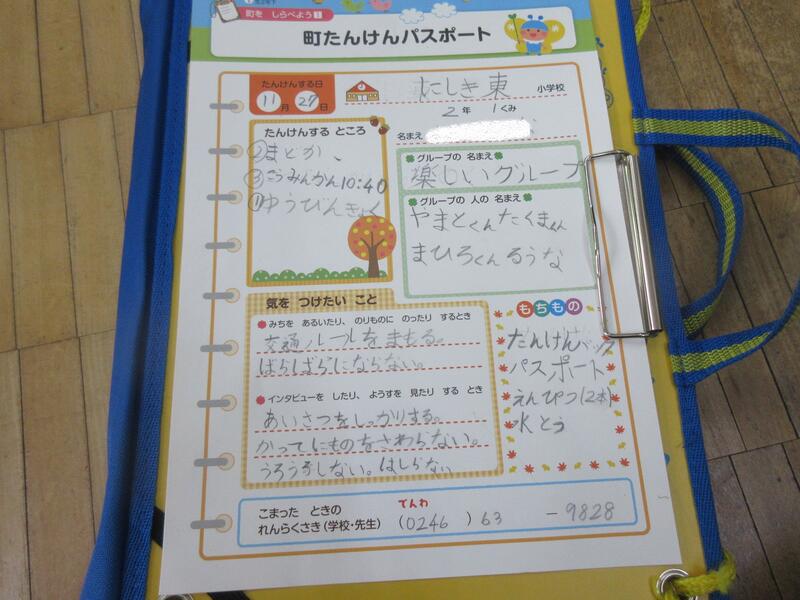 町を しらべよう 1
町たんけんパスポート
たんけんする日
11月27日
にしき東 小学校
2年 1くみ
名まえ
たんけんする ところ
②まどか、
③こうみんかん10:40
①ゆうびんきょく
グループの 名まえ
楽しいグループ
グループの 人の 名まえ
やまとくんたくまくん
まひろくんるうな
気を つけたい こと
みちを あるいたり、のりものに のったり するとき
交通ルールをまもる。
ばらばらにならない。
インタビューを したり、ようすを 見たり する とき
あいさつをしっかりする。
かってにものをさわらない。
うろうろしない。はしらない
もちもの
たんけんバック
パスポート
えんぴつ(2本)
水とう
こまった ときの
れんらくさき(学校・先生)
でんわ
(0246)63-9828